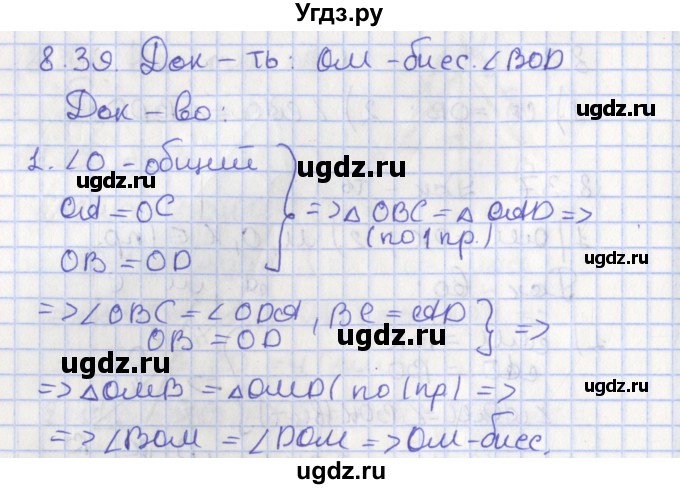 Угдз.ру
8.39. Док-ть: ОМ-бис. ∠BOD
Док-во:
1. ∠O - общий
OA = OC
OB = OD
=> △OBC = △OAD =>
(по 1 пр.)
=> ∠OBC = ∠ODA, BC = AD
OB = OD
=>
=> △OMB = △OMD (по 1 пр) =>
=> ∠BOM = ∠DOM => OM-бис.
ugdz.ru
ugdz.ru
ugdz.ru
ugdz.ru
ugdz.ru
ugdz.ru
ugdz.ru
ugdz.ru
ugdz.ru